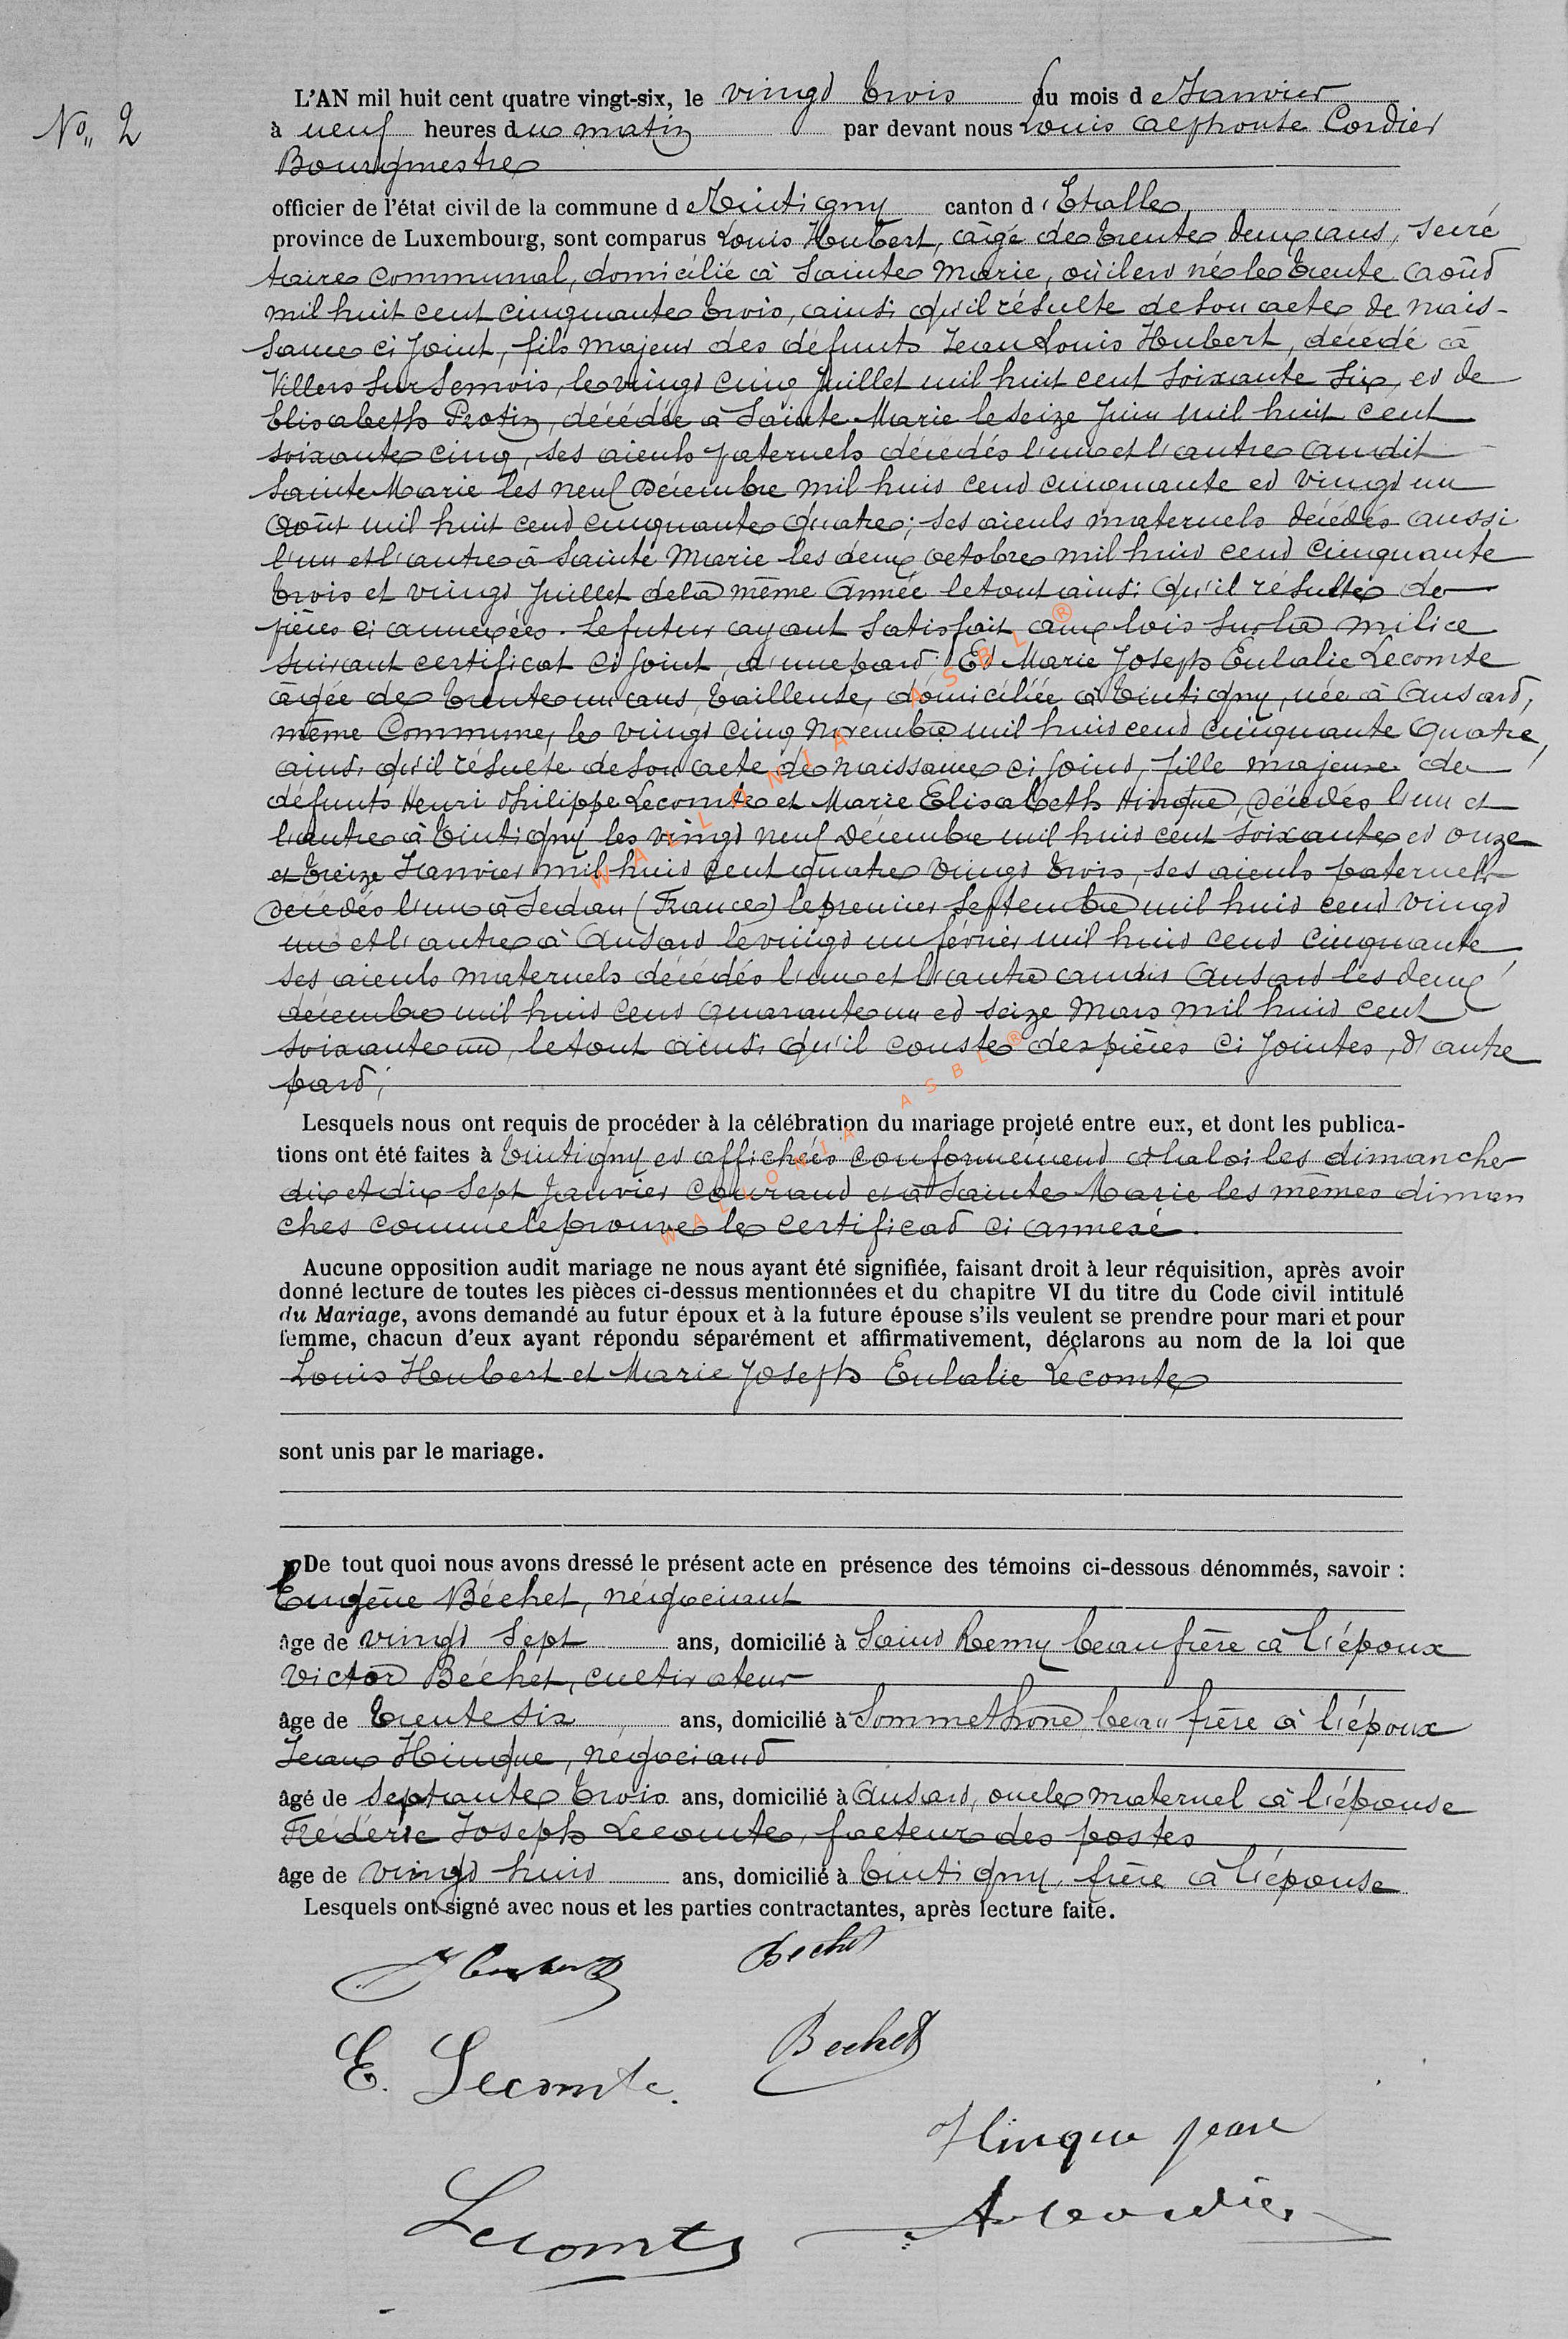 No,, 2
L'AN mil huit cent quatre vingt-six, le vingt trois du mois d e Janvier
à neuf heures du matin par devant nous Louis Alphonse Cordier
Bourgmestre
officier de l'état civil de la commune d e Tintigny canton d' Etalle
province de Luxembourg, sont comparus Louis Hubert, âgé de trente deux ans, secré
taire communal, domicilié à Sainte Marie, où il est né le trente août
mil huit cent cinquante trois, ainsi qu'il résulte de son acte de nais-
sance ci joint, fils majeur des défunts Jean Louis Hubert, décédé à
Villers sur Semois, le vingt cinq Juillet mil huit cent soixante six, et de
Elisabeth Protin, décédée à Sainte Marie le seize Juin mil huit cent
soixante cinq, ses aieuls paternels décédés l'un et l'autre audit
Sainte Marie les neuf Décembre mil huit cent cinquante et vingt un
Août mil huit cent cinquante quatre; ses aieuls maternels décédés aussi
l'un et l'autre à Sainte Marie les deux octobre mil huit cent cinquante
trois et vingt Juillet de la même Année le tout ainsi qu'il résulte de
pièces ci annexées. Le futur ayant satisfait aux lois sur la milice
suivant certificat ci joint, d'une part; Et Marie Joseph Eulalie Lecomte
âgée de trente un ans, tailleuse, domiciliée à Tintigny, née à Ansart,
même Commune, le vingt cinq Novembre mil huit cent cinquante quatre,
ainsi qu'il résulte de son acte de naissance ci joint, fille majeure de
défunts Henri Philippe Lecomte et Marie Elisabeth Hinque, décédés l'un et
l'autre à Tintigny les vingt neuf Décembre mil huit cent soixante et onze
et treize Janvier mil huit cent quatre vingt trois, ses aieuls paternels
décédés l'un à Sedan (France) le premier Septembre mil huit cent vingt
un et l'autre à Ansart le vingt un février mil huit cent cinquante,
ses aieuls maternels décédés l'un et l'autre audit Ansart les deux
décembre mil huit cent quarante un et seize Mars mil huit cent
soixante un, le tout ainsi qu'il conste des pièces ci jointes, d'autre
part;
Lesquels nous ont requis de procéder à la célébration du mariage projeté entre eux, et dont les publica-
tions ont été faites à Tintigny et affichées conformément à la loi les dimanche
dix et dix sept Janvier courant et à Sainte Marie les mêmes diman
ches comme le prouve le certificat ci annexé.
Aucune opposition audit mariage ne nous ayant été signifiée, faisant droit à leur réquisition, après avoir
donné lecture de toutes les pièces ci-dessus mentionnées et du chapitre VI du titre du Code civil intitulé
du Mariage, avons demandé au futur époux et à la future épouse s'ils veulent se prendre pour mari et pour
femme, chacun d'eux ayant répondu séparément et affirmativement, déclarons au nom de la loi que
Louis Hubert et Marie Joseph Eulalie Lecomte
sont unis par le mariage.
De tout quoi nous avons dressé le présent acte en présence des témoins ci-dessous dénommés, savoir :
Eugène Béchet, négociant
âge de vingt sept ans, domicilié à Saint Remy beau frère à l'époux
Victor Béchet, cultivateur
âge de trente six ans, domicilié à Sommethonne beau frère à l'époux
Jean Hinque, négociant
âgé de septante trois ans, domicilié à Ansart, oncle maternel à l'épouse
Frédéric Joseph Lecomte, facteur des postes
âge de vingt huit ans, domicilié à Tintigny, frère à l'épouse
Lesquels ont signé avec nous et les parties contractantes, après lecture faite.
Hubert Bechet
E. Lecomte. Bechet
Hinque jean
Lecomte A Cordier
WALLONIA ASBL ®
WALLONIA ASBL ®